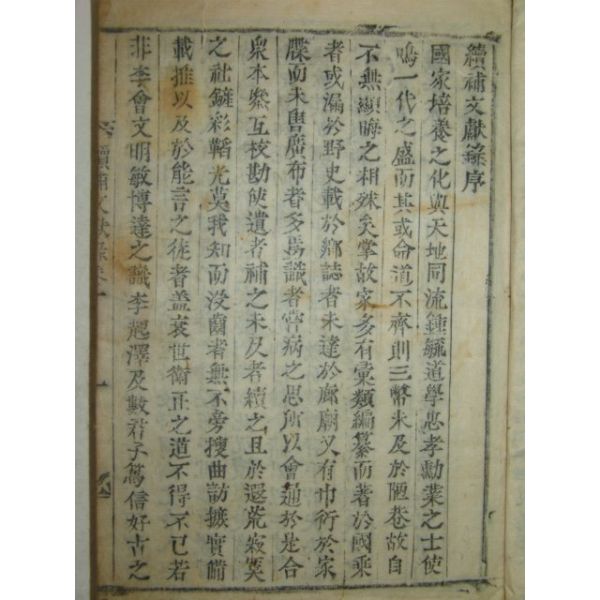 續補文獻錄序
國家培養之化與天地同流鍾毓道學忠孝勳業之士使
鳴一代之盛而其或命道不齊則三幣未及於陋巷故自
不無顯晦之相殊矣掌故家多有彙類編纂而著於國乘
者或漏於野史載於鄕誌者未達於廊廟又有巾衍於家
牒而未曾廣布者多焉識者嘗病之思所以會通於是合
衆本參互校勘使遺者補之未及者續之且於遐荒寂寞
之社鏟彩韜光莫我知而沒齒者無不旁搜曲訪摭實備
載推以及於能言之徒者盖衰世衛正之道不得不已若
非李會文明敏博達之識李澤及數君子篤信好古之
續補文獻錄卷一